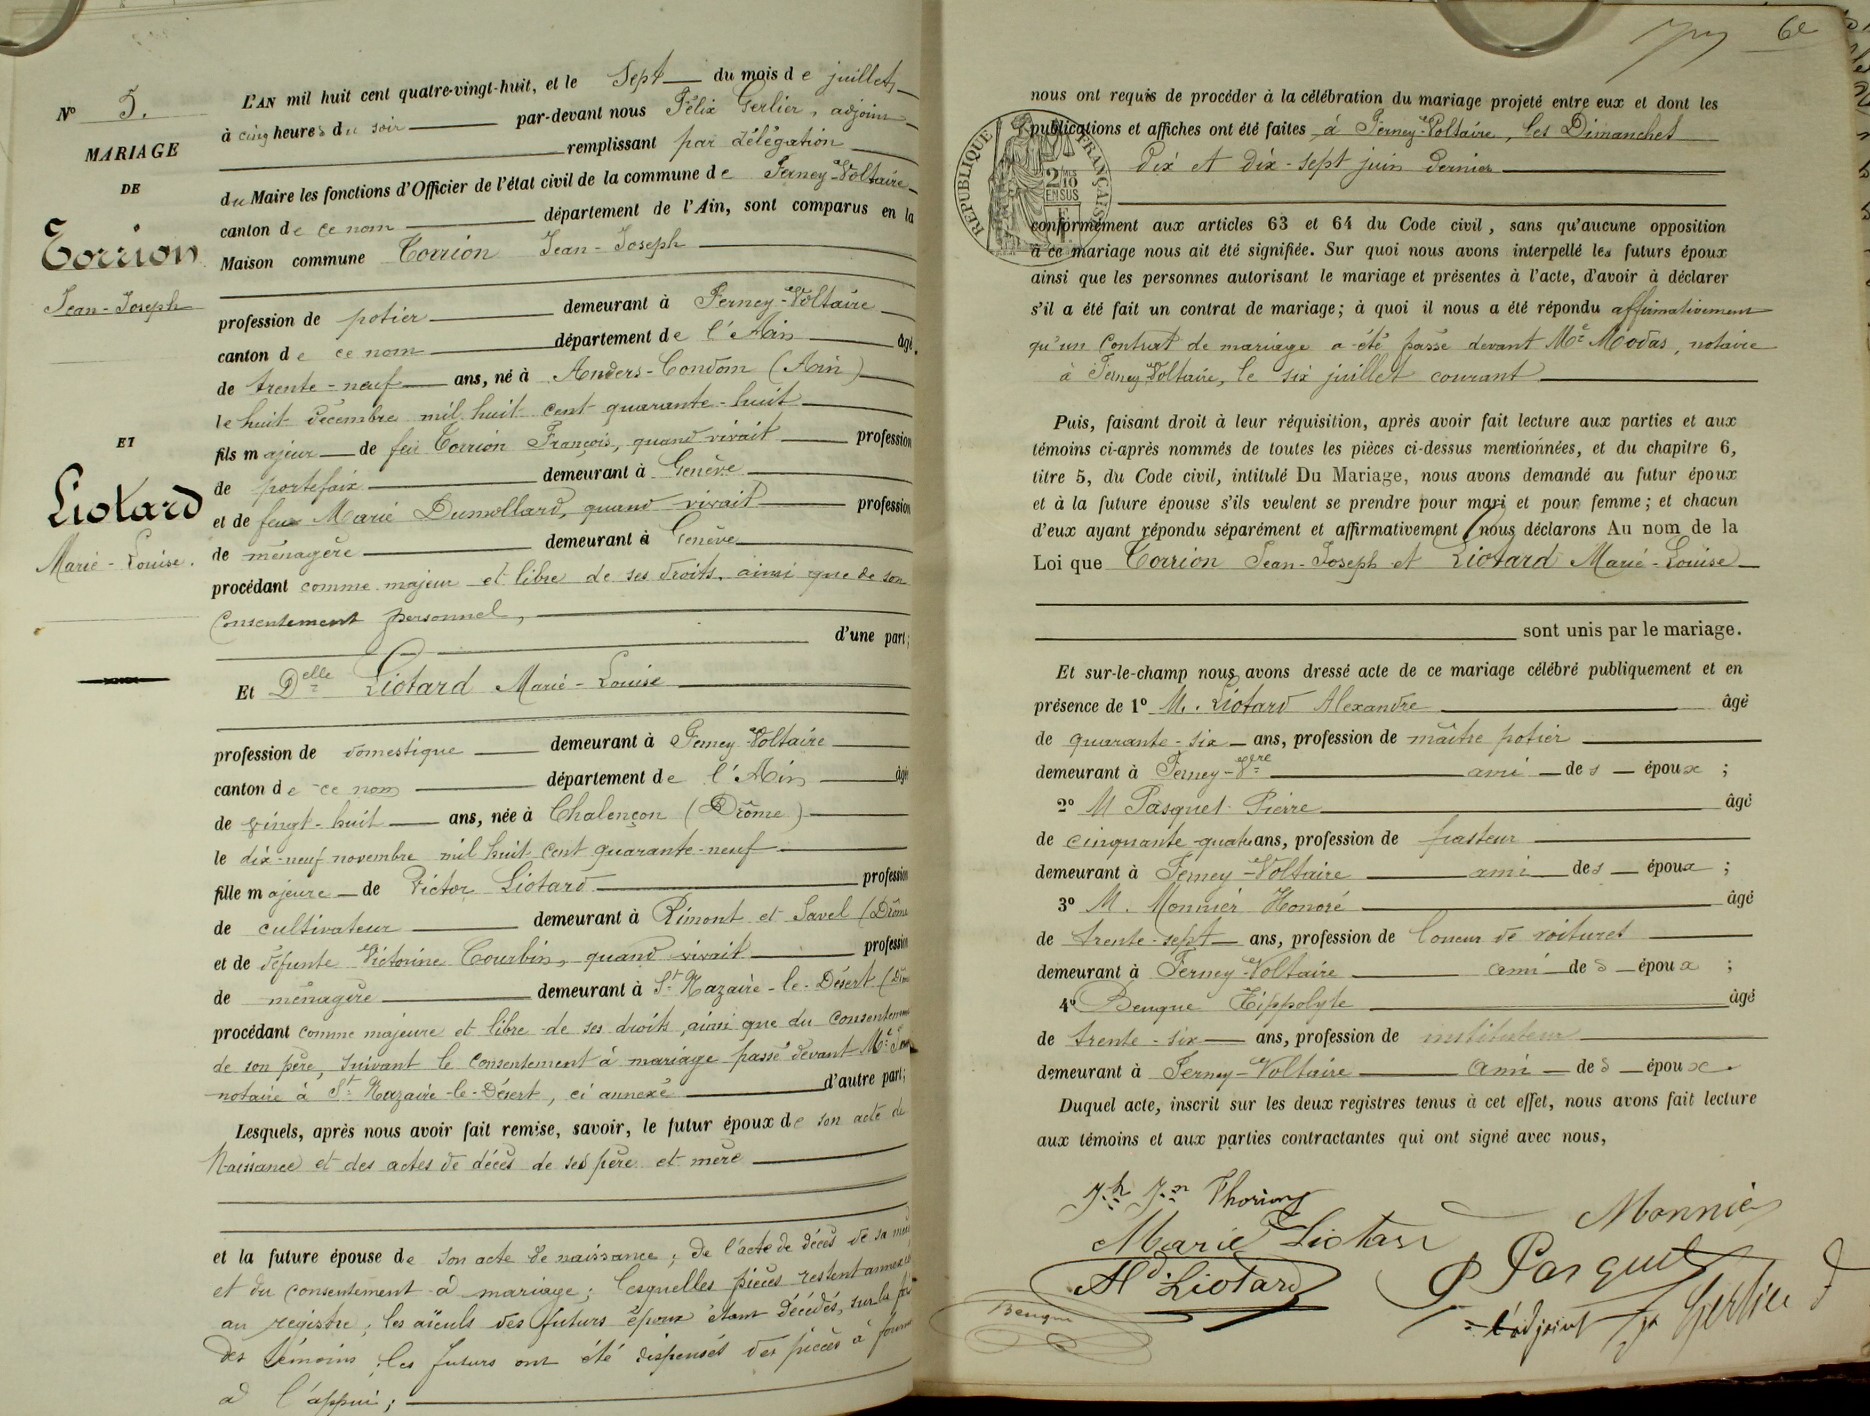 N° 5.
MARIAGE
DE
Torrion
Jean-Joseph
ET
Liotard
Marie-Louise.
L'AN mil huit cent quatre-vingt-huit, et le Sept du mois de juillet,
à cinq heures du soir par-devant nous Félix Gerlier, adjoint
remplissant par délégation
du Maire les fonctions d'Officier de l'état civil de la commune de Ferney-Voltaire
canton de ce nom département de l'Ain, sont comparus en la
Maison commune Torrion Jean-Joseph
profession de potier demeurant à Ferney-Voltaire
canton de ce nom département de l'Ain âgé
de trente-neuf ans, né à Anders-Condom (Ain)
le huit décembre mil huit cent quarante-huit
fils majeur de feu Torrion François, quand vivait profession
de portefaix demeurant à Genève
et de feue Marie Dumollard, quand vivait profession
de ménagère demeurant à Genève
procédant comme majeur et libre de ses droits, ainsi que de son
consentement personnel,
d'une part;
Et Delle Liotard Marie-Louise
profession de domestique demeurant à Ferney Voltaire
canton de ce nom département de l'Ain âgé
de vingt-huit ans, née à Chalençon (Drôme)
le dix-neuf novembre mil huit cent quarante-neuf
fille majeure de Victor Liotard profession
de cultivateur demeurant à Rimont et Savel (Drôme
et de défunte Victorine Courbin, quand vivait profession
de ménagère demeurant à St Nazaire-le-Désert
procédant comme majeure et libre de ses droits, ainsi que du consentement
de son père, suivant le consentement à mariage passé devant Me
notaire à St Nazaire-le-Désert, ci annexé d'autre part;
Lesquels, après nous avoir fait remise, savoir, le futur époux de son acte de
Naissance et des actes de décès de ses père et mère
et la future épouse de son acte de naissance; de l'acte de décès de sa mère
et du consentement à mariage; lesquelles pièces restent annexées
au registre; les aïeuls des futurs époux étant décédés, sur la foi
des témoins, les futurs ont été dispensés des pièces à fournir
à l'appui;
60
nous ont requis de procéder à la célébration du mariage projeté entre eux et dont les
publications et affiches ont été faites à Ferney-Voltaire, les Dimanches
dix et dix-sept juin dernier
REPUBLIQUE FRANÇAISE
2/10 EN SUS
conformément aux articles 63 et 64 du Code civil, sans qu'aucune opposition
à ce mariage nous ait été signifiée. Sur quoi nous avons interpellé les futurs époux
ainsi que les personnes autorisant le mariage et présentes à l'acte, d'avoir à déclarer
s'il a été fait un contrat de mariage; à quoi il nous a été répondu affirmativement
qu'un Contrat de mariage a été passé devant Me Modas, notaire
à Ferney Voltaire, le six juillet courant
Puis, faisant droit à leur réquisition, après avoir fait lecture aux parties et aux
témoins ci-après nommés de toutes les pièces ci-dessus mentionnées, et du chapitre 6,
titre 5, du Code civil, intitulé Du Mariage, nous avons demandé au futur époux
et à la future épouse s'ils veulent se prendre pour mari et pour femme; et chacun
d'eux ayant répondu séparément et affirmativement nous déclarons Au nom de la
Loi que Torrion Jean-Joseph et Liotard Marie-Louise
sont unis par le mariage.
Et sur-le-champ nous avons dressé acte de ce mariage célébré publiquement et en
présence de 1° M. Liotard Alexandre âgé
de quarante-six ans, profession de maître potier
demeurant à Ferney-Vre ami des époux;
2° M Pasquet Pierre âgé
de cinquante-quatre ans, profession de pasteur
demeurant à Ferney-Voltaire ami des époux;
3° M. Monnier Honoré âgé
de trente-sept ans, profession de loueur de voitures
demeurant à Ferney-Voltaire ami des époux;
4° Bengue Hippolyte âgé
de trente-six ans, profession de instituteur
demeurant à Ferney-Voltaire ami des époux.
Duquel acte, inscrit sur les deux registres tenus à cet effet, nous avons fait lecture
aux témoins et aux parties contractantes qui ont signé avec nous,
Jh Jn Thorion
Marie Liotard
Monnier
Ad. Liotard
P Pasquet
Bengue
l'adjoint Gerlier